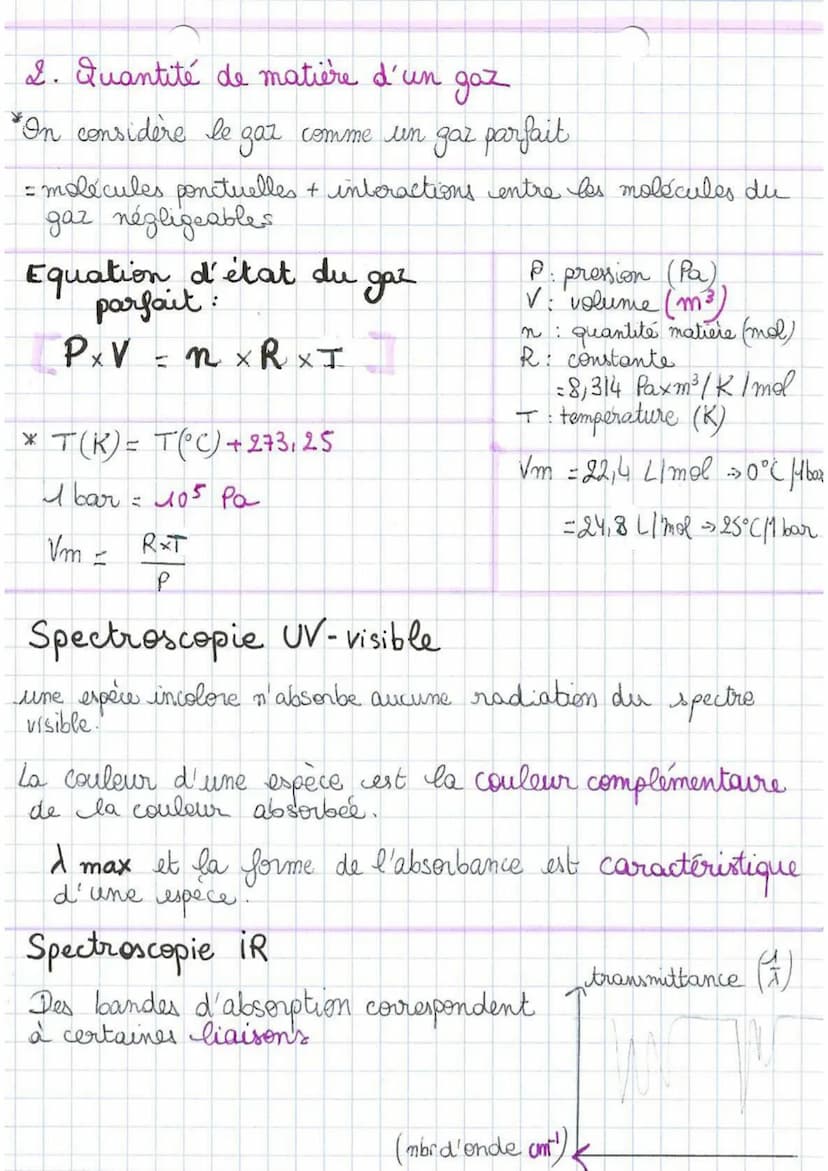 2. Quantité de matière d'un gaz
*On considère le gaz comme un gaz parfait
= molécules ponctuelles + interactions entre les molécules du
gaz négligeables
Equation d'état du gaz
parfait :
[ P x V = n x R x T ]
* T(K) = T(°C) + 273,25
1 bar = 10⁵ Pa
Vm = RxT/P
P : pression (Pa)
V : volume (m³)
n : quantité matière (mol)
R : constante
=8,314 Paxm³/K/mol
T : température (K)
Vm = 22,4 L/mol → 0°C/1bar
= 24,8 L/mol → 25°C/1 bar
Spectroscopie UV-visible
une espèce incolore n'absorbe aucune radiation du spectre
visible.
La couleur d'une espèce est la couleur complémentaire
de la couleur absorbée.
λ max et la forme de l'absorbance est caractéristique
d'une espèce.
Spectroscopie iR
Des bandes d'absorption correspondent
à certaines liaisons
transmittance (1/λ)
(nbr d'onde cm⁻¹)